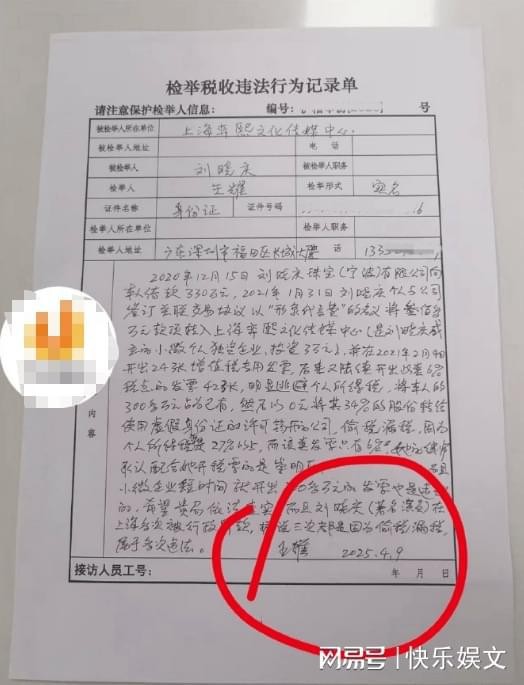 检举税收违法行为记录单
请注意保护检举人信息: 编号: 号
被检举人所在单位 上海 熙文化传媒中心
被检举人地址 电 话
被检举人 刘晓庆 被检举人职务
检举人 王耀 检举形式 实名
证件名称 身份证 证件号码 16
检举人所在单位 检举人职务
检举人地址 广东深圳市福田区长城大厦 133
2020年12月15日刘晓庆珠宝(宁波)有限公司向
本人借款330万元,2021年1月31日刘晓庆个人与公司
签订关联交易协议以“形象代言费”的名义将叁佰多
万元款项转入上海 熙文化传媒中心(是刘晓庆成
立的小微个人独资企业,投资3万元),并在2021年2月4日
开出24张增值税专用发票,后来又陆续开出
税点的发票42张,明显逃避个人所得税,将本人的
300多万元占为己有,然后以0元将其34%的股份转给
使用虚假身份证的许可 的公司,偷税漏税,因为
个人所得税 27%以上,而该类发票只有6%,她的
承认配合她开税票的是
小微企业短时间就开出 0多万元的发票也是违
的,希望贵局依法查实,而且刘晓庆(著名演员)在
上海多次被行政 三次都是因为偷税漏税,
属于多次违法。 王耀 2025.4.9
内
容
接访人员工号: 年 月 日
网易号 | 快乐娱文